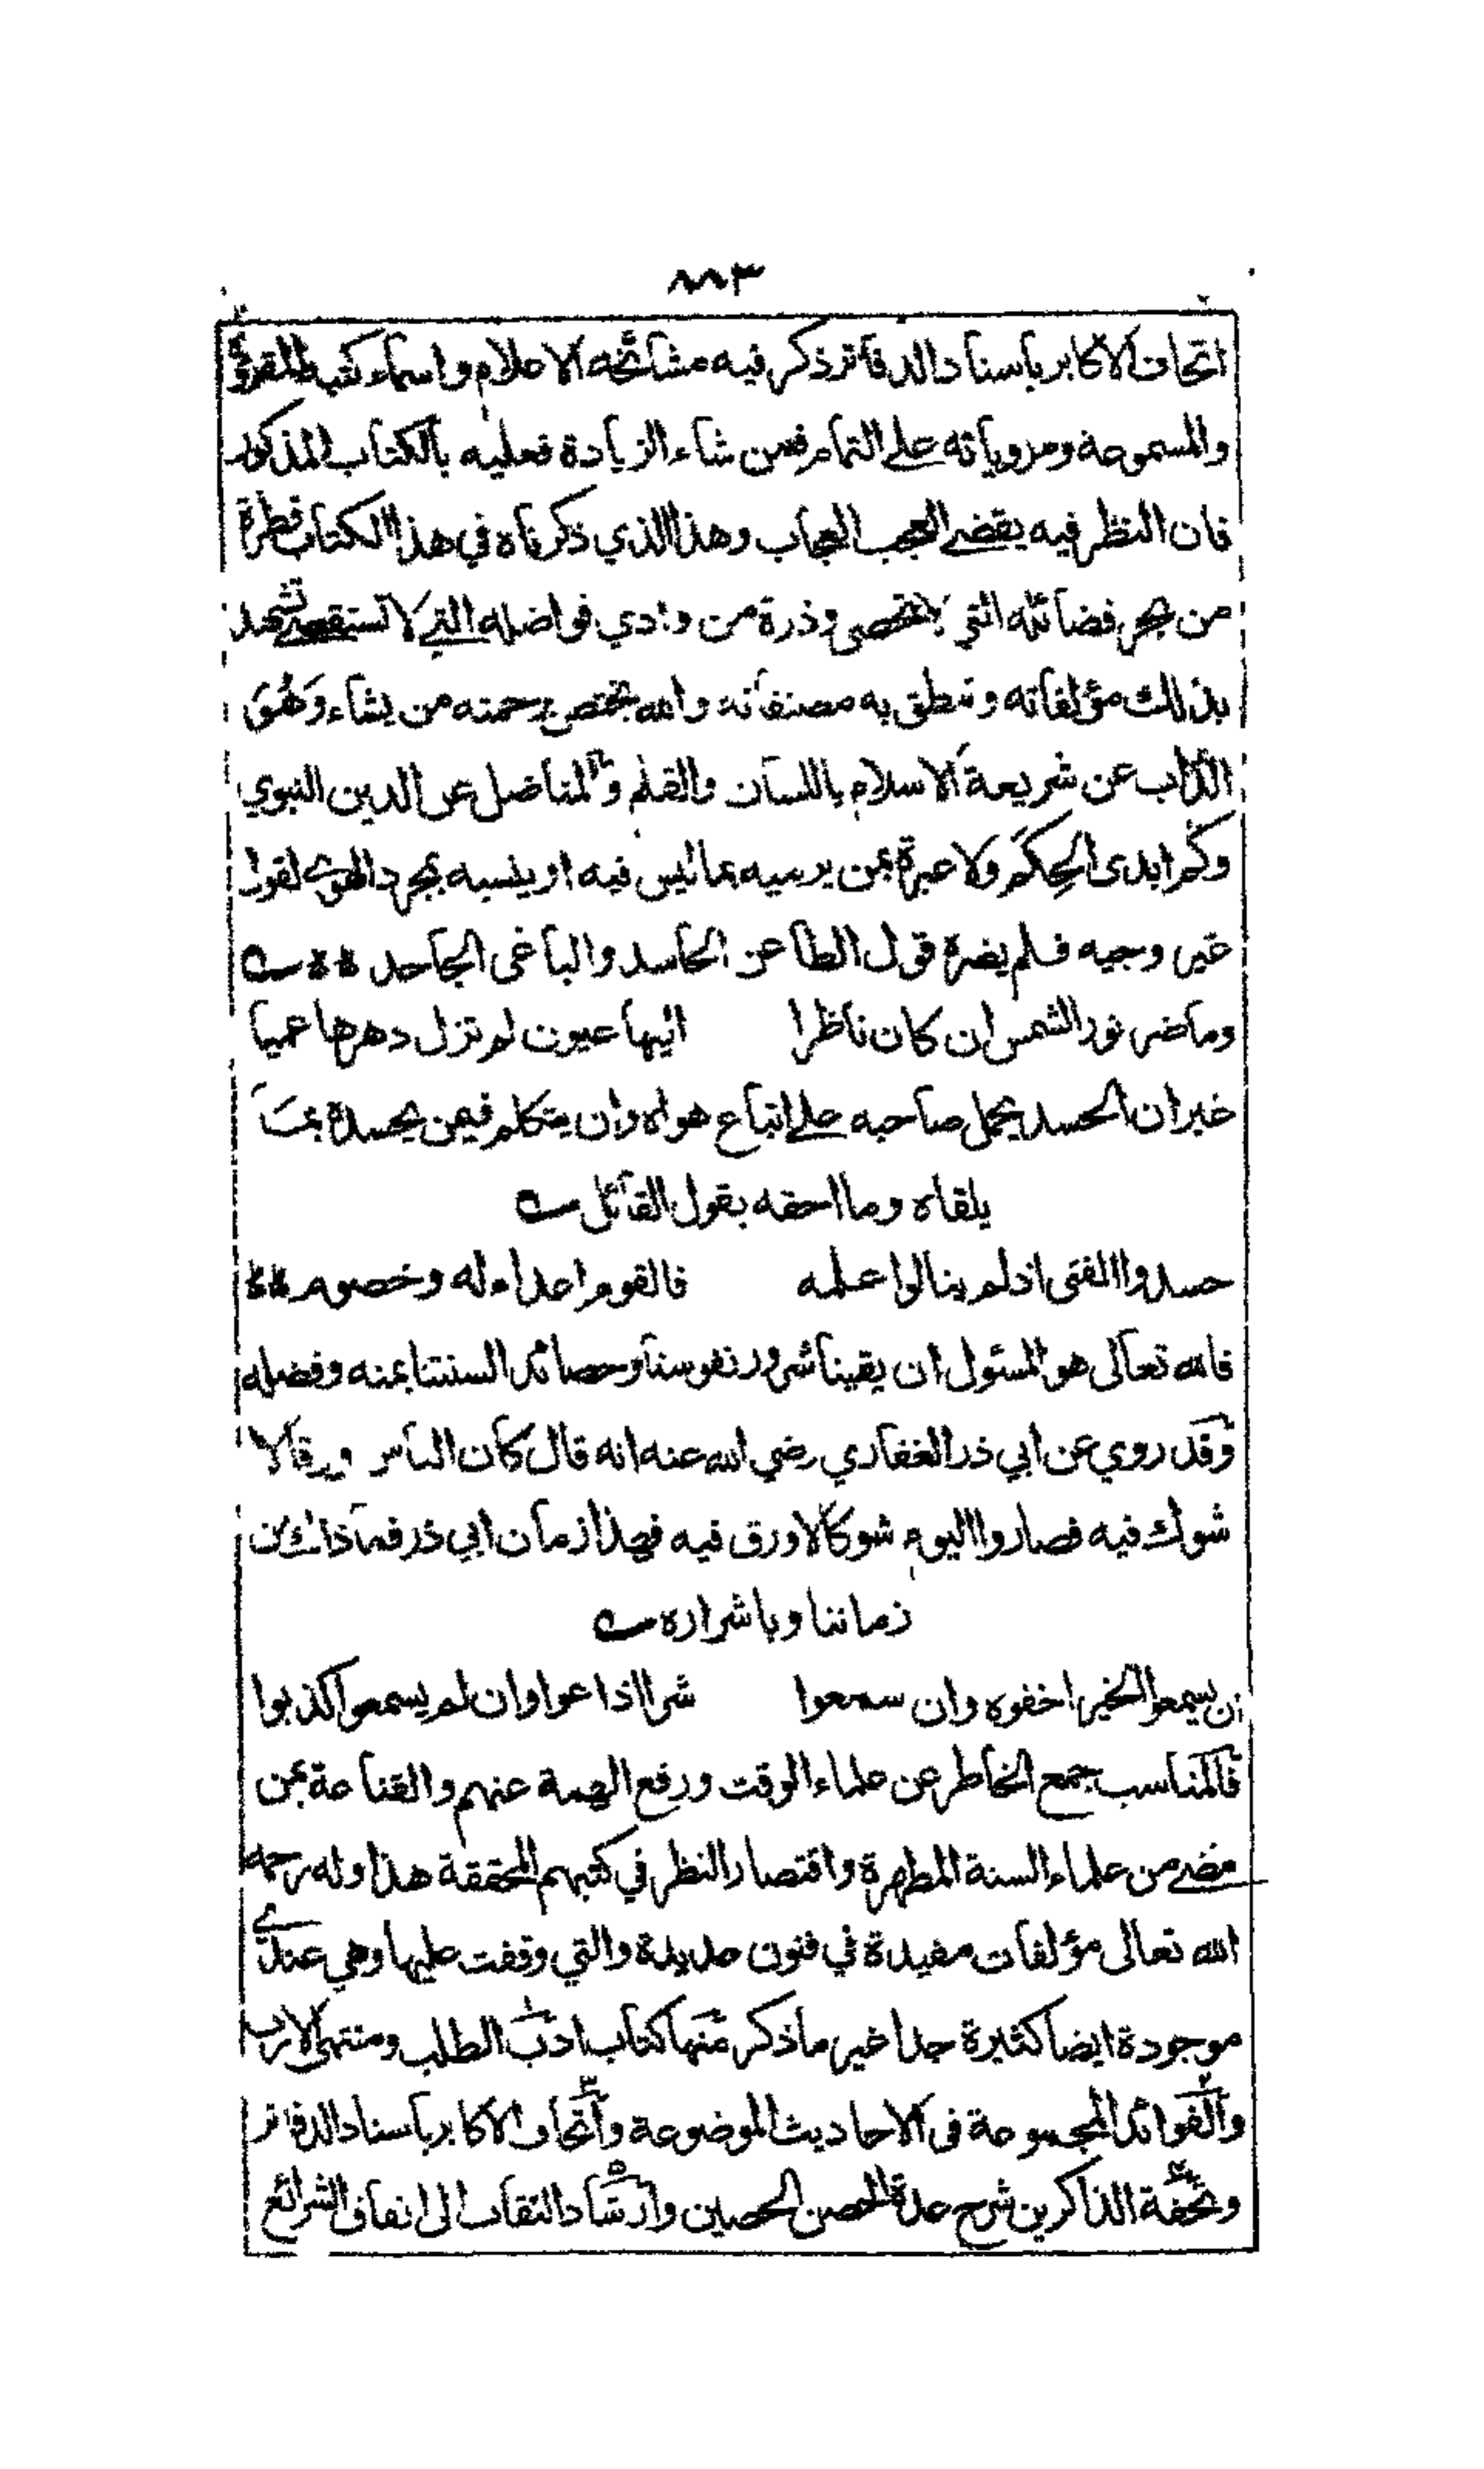 ٨٨٣
اتحاف الاكابر باسناد الدفاتر ذكر فيه مشائخه الاعلام واسماء كتبه المقروة
والمسموعة ومروياته على التمام فمن شاء الزيادة فعليه بالكتاب المذكور
فان النظر فيه يقضى العجب العجاب وهذا الذي ذكرناه في هذا الكتاب قطرة
من بحر فضائله التي وذرة من وادي فواضله التي لا تستقصى تشهد
بذلك مؤلفاته وتنطق به مصنفاته والله يختص برحمته من يشاء وَهُوَ
الذاب عن شريعة الاسلام باللسان والقلم والمناضل عن الدين النبوي
وكم ابدى الحِكَم ولا عبرة بمن يرميه بما ليس فيه او ينسبه بمجرد الهوى لقول
غير وجيه فلم يضره قول الطاعن الحاسد والباغى الجاحد
وما ضر نور الشمس ان كان ناظرا اليها عيون لم تزل دهرها عميا
غير ان الحسد يحمل صاحبه على اتباع هواه وان يتكلم فيمن يحسده بما
يلقاه وما احقه بقول القائل
حسدوا الفتى اذ لم ينالوا علمه فالقوم اعداء له وخصوم
فالله تعالى هو المسئول ان يقينا شرور نفوسنا وحصائد السنتنا بمنه وفضله
وقد روي عن ابي ذر الغفاري رضي الله عنه انه قال كان الناس ورقا لا
شوك فيه فصاروا اليوم شوكا لا ورق فيه فهذا زمان ابي ذر فما ذاك من
زماننا وباشراره
ان يسمعوا الخير اخفوه وان سمعوا شرا اذاعوا وان لم يسمعوا كذبوا
فالمناسب جمع الخاطر عن علماء الوقت ورفع الهمة عنهم والقناعة بمن
مضى من علماء السنة المطهرة واقتصار النظر في كتبهم المحققة هذا وله رحمه
الله تعالى مؤلفات مفيدة في فنون عديدة والتي وقفت عليها وهي عندي
موجودة ايضا كثيرة جدا غير ما ذكر منها كتاب ادب الطلب ومنتهى الارب
والفوائد المجموعة فى الاحاديث الموضوعة واتحاف الاكابر باسناد الدفاتر
وتحفة الذاكرين شرح عدة الحصن الحصين وارشاد الثقات الى اتفاق الشرائع